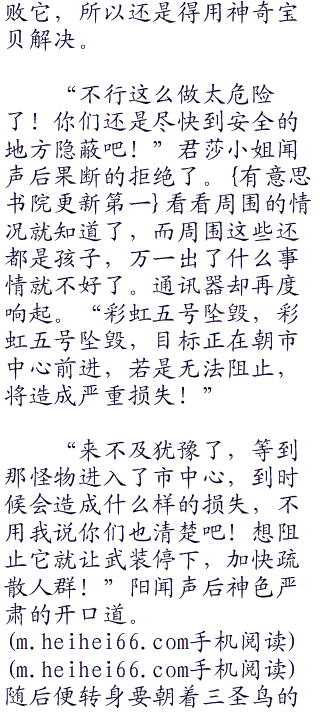 败它，所以还是得用神奇宝
贝解决。
“不行这么做太危险
了！你们还是尽快到安全的
地方隐蔽吧！”君莎小姐闻
声后果断的拒绝了。{有意思
书院更新第一}看看周围的情
况就知道了，而周围这些还
都是孩子，万一出了什么事
情就不好了。通讯器却再度
响起。“彩虹五号坠毁，彩
虹五号坠毁，目标正在朝市
中心前进，若是无法阻止，
将造成严重损失！”
“来不及犹豫了，等到
那怪物进入了市中心，到时
候会造成什么样的损失，不
用我说你们也清楚吧！想阻
止它就让武装停下，加快疏
散人群！”阳闻声后神色严
肃的开口道。
(m.heihei66.com手机阅读)
(m.heihei66.com手机阅读)
随后便转身要朝着三圣鸟的